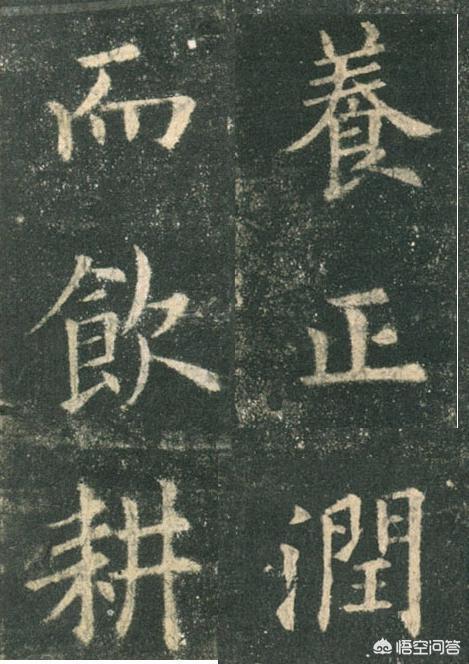 養正潤
而飲耕
悟空问答